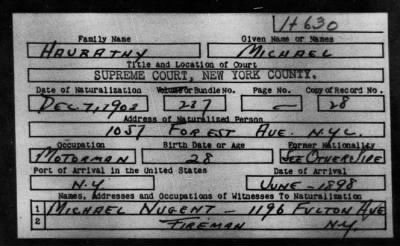 H630
Family Name Given Name or Names
HAURATHY MICHAEL
Title and Location of Court
SUPREME COURT, NEW YORK COUNTY.
Date of Naturalization Volume or Bundle No. Page No. Copy of Record No.
DEC. 7, 1903 237 — 28
Address of Naturalized Person
1057 FOREST AVE. N.Y.C.
Occupation Birth Date or Age Former Nationality
MOTORMAN 28 SEE OTHER SIDE
Port of Arrival in the United States Date of Arrival
N.Y. JUNE - 1898
Names, Addresses and Occupations of Witnesses To Naturalization
1 MICHAEL NUGENT - 1196 FULTON AVE
2 FIREMAN N.Y.